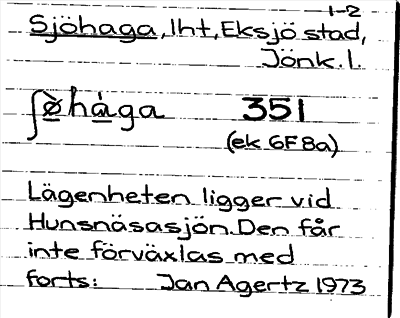 1-2
Sjöhaga, lht, Eksjö stad,
Jönk. l.
ʃø̀hàga 351
(ek 6F8a)
Lägenheten ligger vid
Hunsnäsasjön. Den får
inte förväxlas med
forts: Jan Agertz 1973